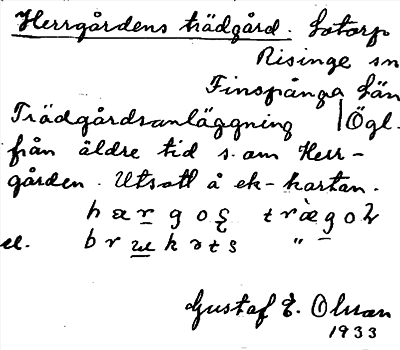 Herrgårdens trädgård. Lotorp
Risinge sn
Finspånga län
Trädgårdsanläggning | Ögl.
från äldre tid s. om Herr-
gården. Utsatt å ek-kartan.
el. "
Gustaf E. Olsson
1933